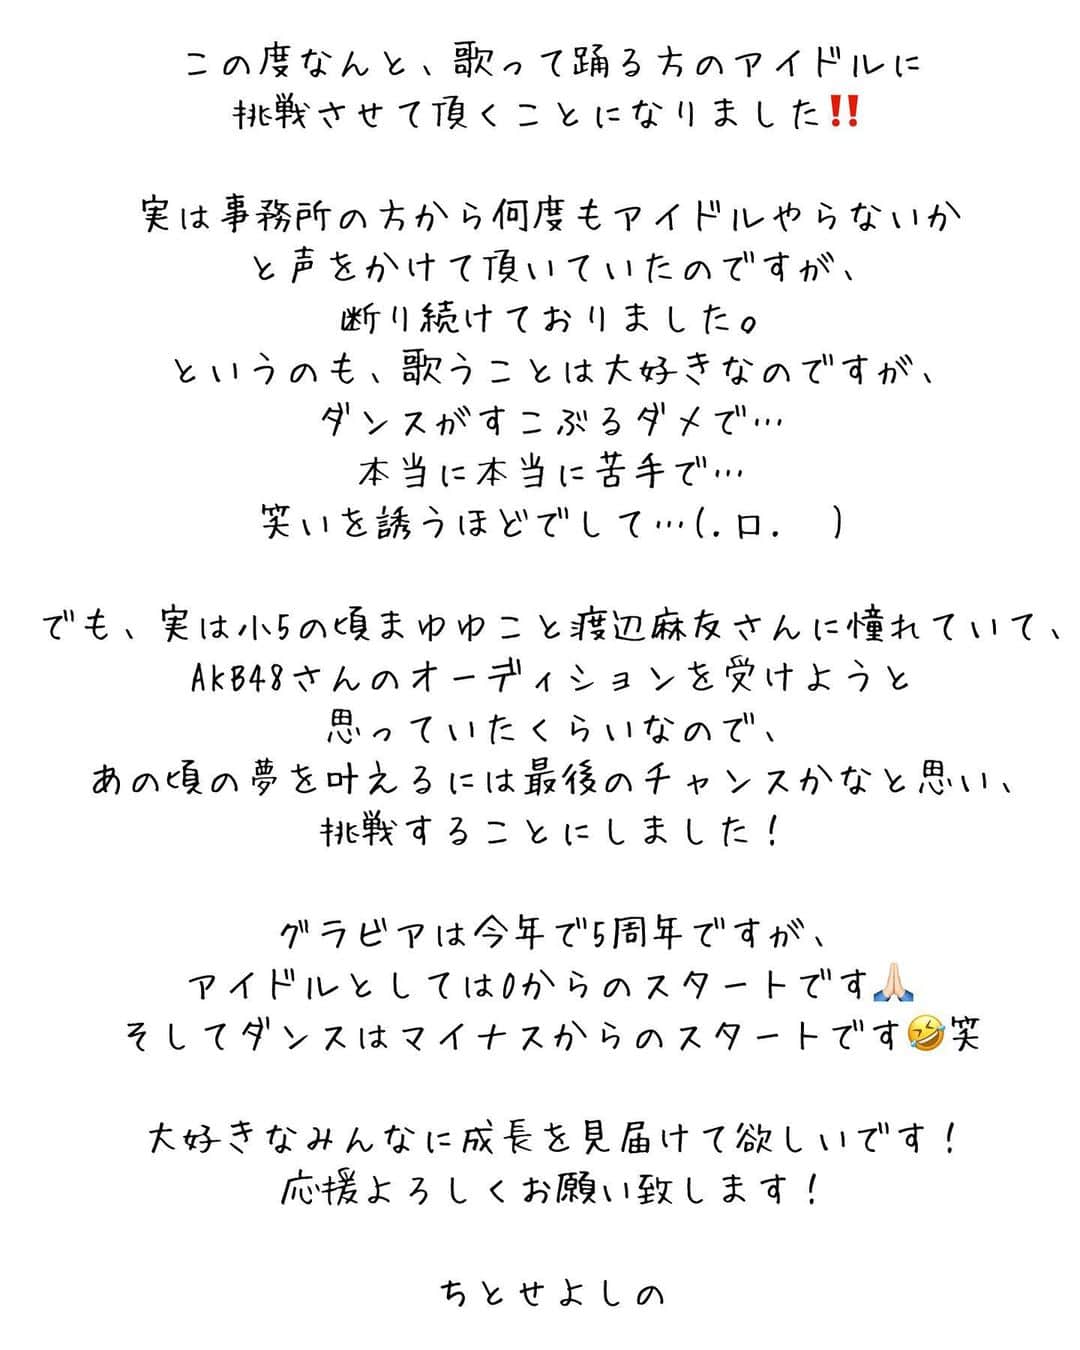 この度なんと、歌って踊る方のアイドルに
挑戦させて頂くことになりました‼️
実は事務所の方から何度もアイドルやらないか
と声をかけて頂いていたのですが、
断り続けておりました。
というのも、歌うことは大好きなのですが、
ダンスがすこぶるダメで…
本当に本当に苦手で…
笑いを誘うほどでして…(.ロ.　)
でも、実は小5の頃まゆゆこと渡辺麻友さんに憧れていて、
AKB48さんのオーディションを受けようと
思っていたくらいなので、
あの頃の夢を叶えるには最後のチャンスかなと思い、
挑戦することにしました！
グラビアは今年で5周年ですが、
アイドルとしては0からのスタートです🙏🏻
そしてダンスはマイナスからのスタートです🤣笑
大好きなみんなに成長を見届けて欲しいです！
応援よろしくお願い致します！
ちとせよしの